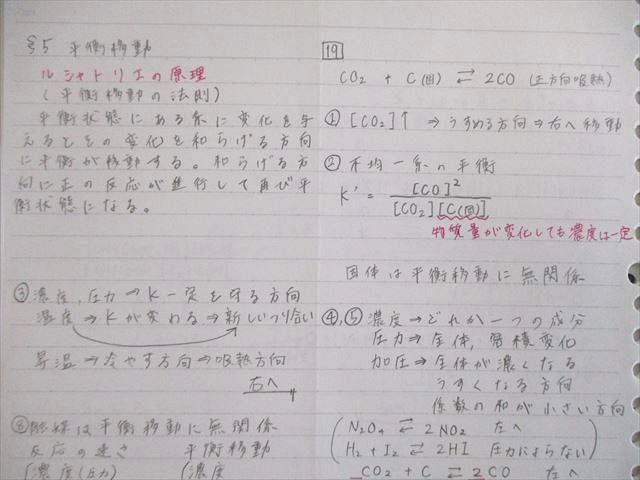 §5 平衡移動
ルシャトリエの原理
(平衡移動の法則)
平衡状態にある系に変化を与
えるとその変化を和らげる方向
に平衡が移動する。和らげる方
向に正の反応が進行して再び平
衡状態になる。
③濃度,圧力→K一定を守る方向
温度⇒Kが変わる⇒新しいつり合い
昇温⇒冷やす方向⇒吸熱方向
右へ
⑧触媒は平衡移動に無関係
反応の速さ 平衡移動
濃度(圧力) 濃度
19
CO2 + C(固) ⇄ 2CO (正方向吸熱)
① [CO2]↑ ⇒うすめる方向⇒右へ移動
② 不均一系の平衡
K' = [CO]² / [CO2][C(固)]
物質量が変化しても濃度は一定
固体は平衡移動に無関係
④,⑤ 濃度→どれか一つの成分
圧力⇒全体,容積変化
加圧⇒全体が濃くなる
うすくなる方向
係数の和が小さい方向
N2O4 ⇄ 2NO2 左へ
H2 + I2 ⇄ 2HI 圧力によらない
CO2 + C ⇄ 2CO 左へ